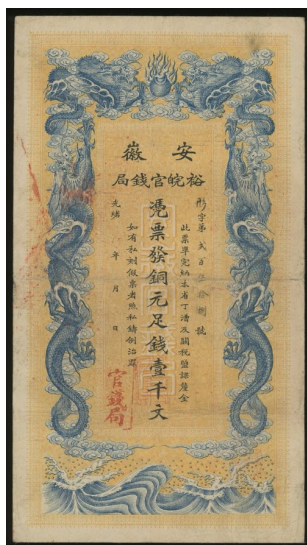 安徽
裕皖官錢局
彤字第貳百 拾捌號
此票準完納本省丁漕及關稅鹽課釐金
憑票發銅元足錢壹千文
如有私刻假票者照私鑄例治罪
光緒 年 月 日
官錢局